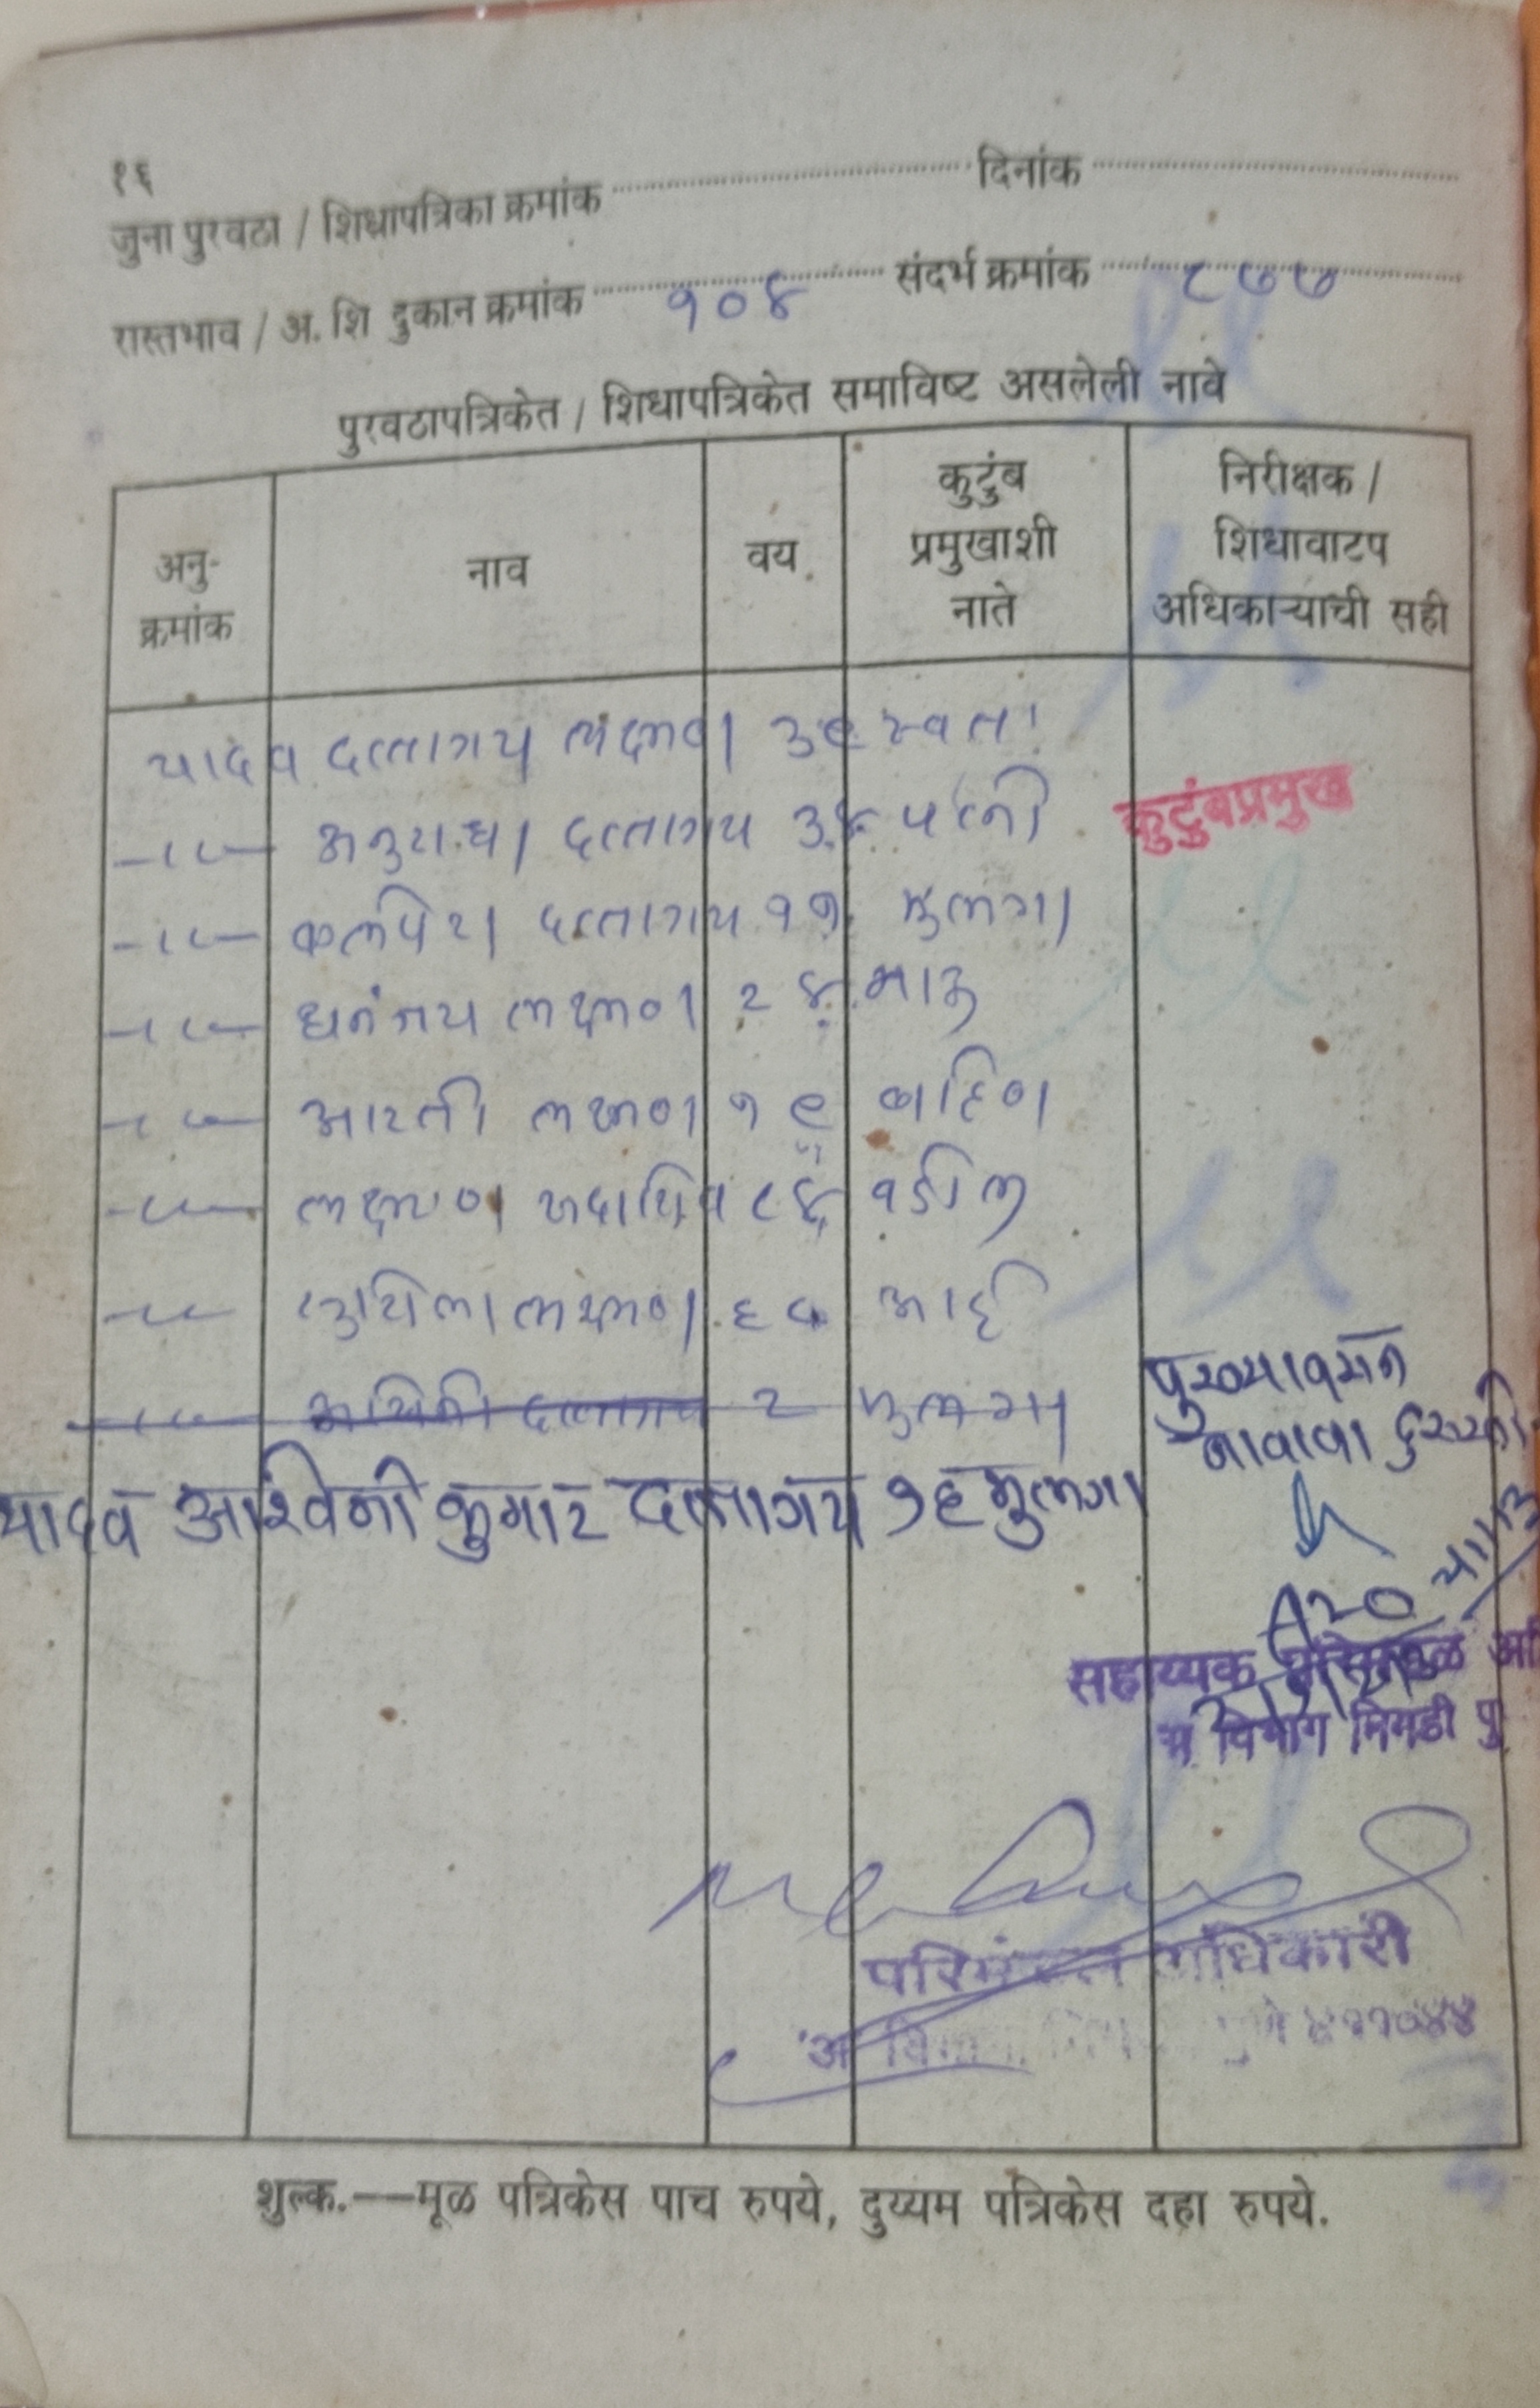 १६
जुना पुरवठा / शिधापत्रिका क्रमांक दिनांक
रास्तभाव / अ. शि दुकान क्रमांक १०४ संदर्भ क्रमांक ८७७
पुरवठापत्रिकेत / शिधापत्रिकेत समाविष्ट असलेली नावे
अनु-क्रमांक नाव वय कुटुंब प्रमुखाशी नाते निरीक्षक / शिधावाटप अधिकाऱ्याची सही
यादव दत्तात्रय लक्ष्मण ३९ स्वतः
कुटुंबप्रमुख
-॥- अनुराधा दत्तात्रय ३४ पत्नी
-॥- दत्तात्रय ११ मुलगा
-॥- धनंजय लक्ष्मण २४ भाऊ
-॥- आरती लक्ष्मण १९ बहिण
-॥- लक्ष्मण सदाशिव ८४ वडील
-॥- लक्ष्मण ६५ आई
-॥- दत्तात्रय २ मुलगा
पुराव्यावरून
नावाचा दुरुस्ती
यादव आश्विनी कुमार दत्तात्रय १९ मुलगा
सहाय्यक परिमंडळ
विभाग निगडी
परिमंडळ अधिकारी
४११०४४
शुल्क.—मूळ पत्रिकेस पाच रुपये, दुय्यम पत्रिकेस दहा रुपये.